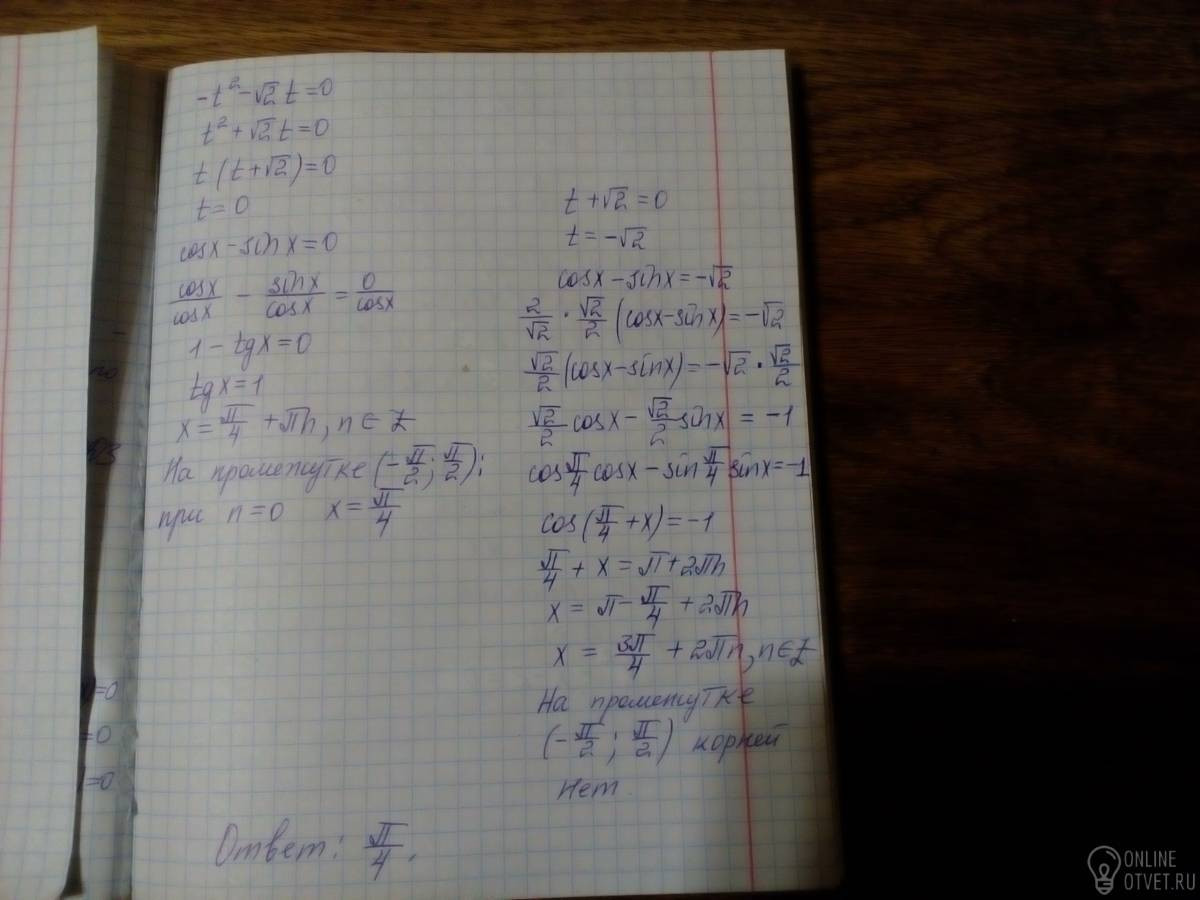 -t² - √2 t = 0
t² + √2 t = 0
t (t + √2) = 0
t = 0
cosx - sinx = 0
cosx/cosx - sinx/cosx = 0/cosx
1 - tgx = 0
tgx = 1
x = π/4 + πn, n ∈ Z
На промежутке (-π/2; π/2):
при n = 0 x = π/4
t + √2 = 0
t = -√2
cosx - sinx = -√2
2/√2 · √2/2 (cosx - sinx) = -√2
√2/2 (cosx - sinx) = -√2 · √2/2
√2/2 cosx - √2/2 sinx = -1
cos π/4 cosx - sin π/4 sinx = -1
cos (π/4 + x) = -1
π/4 + x = π + 2πn
x = π - π/4 + 2πn
x = 3π/4 + 2πn, n ∈ Z
На промежутке
(-π/2; π/2) корней
нет
Ответ: π/4.
=0
=0
=0
ONLINE
OTVET.RU